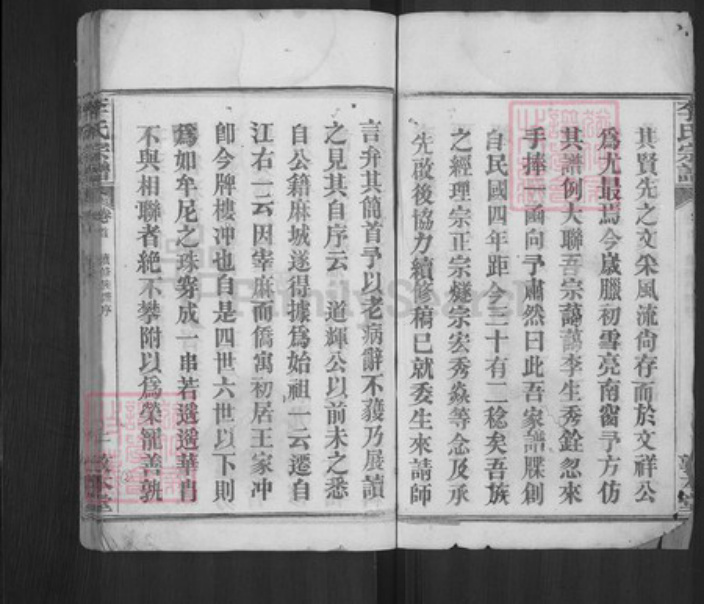 其賢先之文采風流尙存而於文祥公
爲尤最焉今歲臘初雪亮南窗予方仿
其譜例大聯吾宗藹藹李生秀銓忽來
手捧一函向予肅然曰此吾家譜牒創
自民國四年距今三十有二稔矣吾族
之經理宗正宗燧宗宏秀焱等念及承
先啟後協力續修稿已就委生來請師
言弁其簡首予以老病辭不獲乃展讀
之見其自序云 道輝公以前未之悉
自公籍麻城遂得據爲始祖一云遷自
江右一云因宰麻而僑寓初居王家冲
卽今牌樓冲也自是四世六世以下則
爲如牟尼之珠穿成一串若遙遙華冑
不與相聯者絶不攀附以爲榮寵善孰
李氏宗譜 卷首 續修族譜序 一 敦本堂
李氏宗譜
敦本堂
FamilySearch